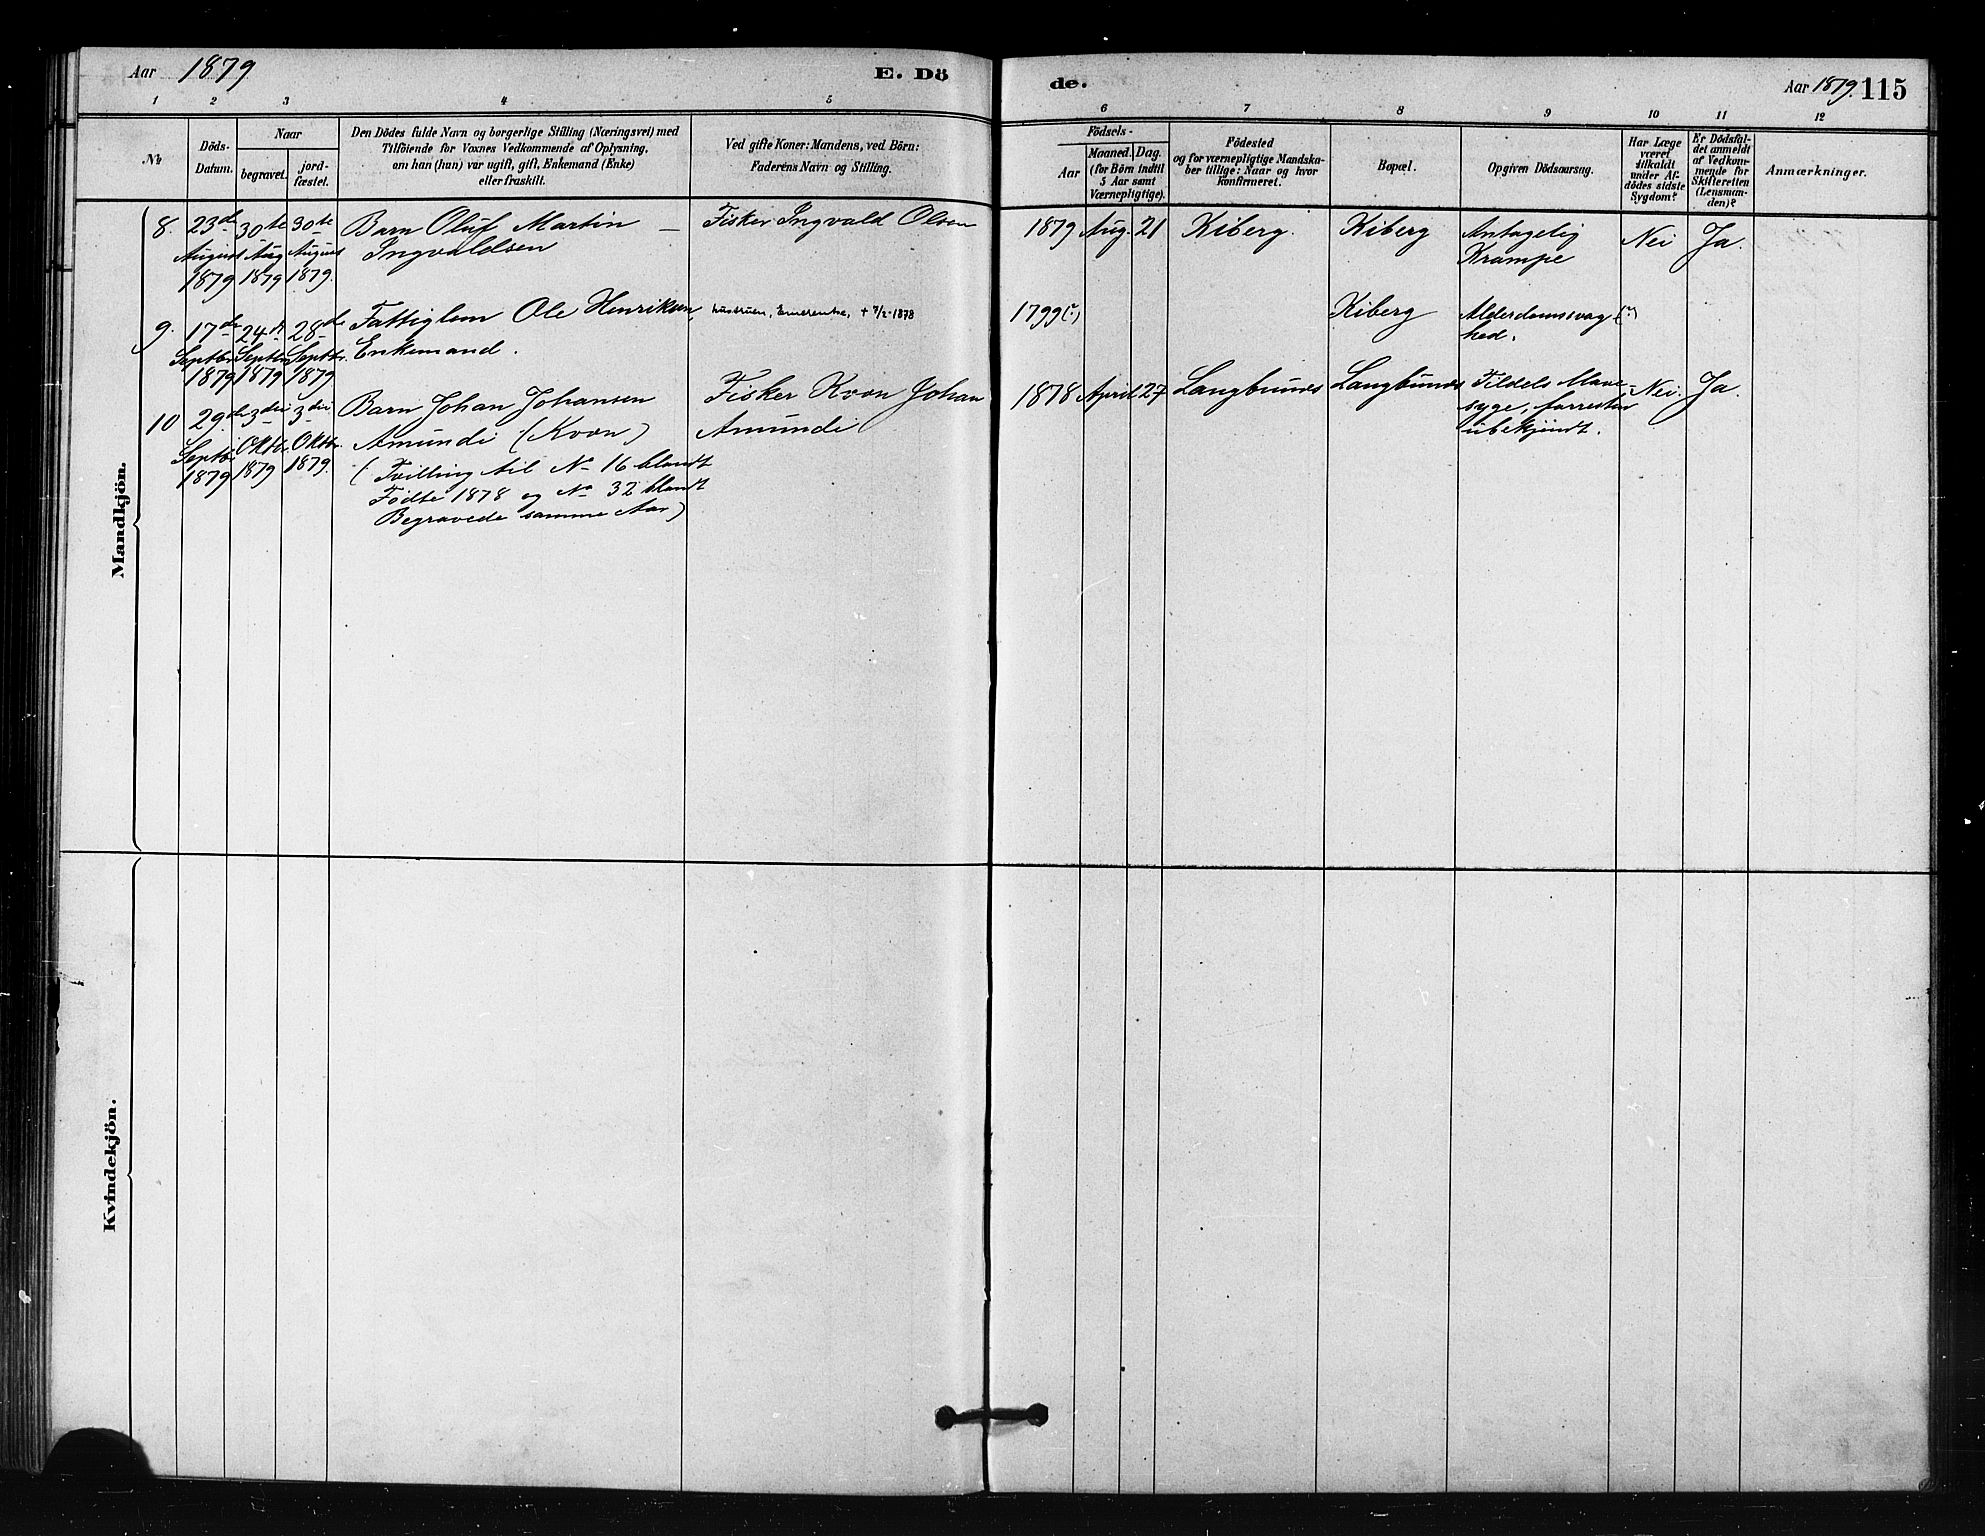 Aar 1879
E. Dö
de.
Aar 1879. 115
1 2 3 4 5 6 7 8 9 10 11 12
№
Döds-
Datum.
Naar
begravet.
jord-
fæstet.
Den Dödes fulde Navn og borgerlige Stilling (Næringsvei) med
Tilföiende for Voxnes Vedkommende af Oplysning,
om han (hun) var ugift, gift, Enkemand (Enke)
eller fraskilt.
Ved gifte Koner: Mandens, ved Börn:
Faderens Navn og Stilling.
Födsels-
Aar
Maaned. Dag.
(for Börn indtil
5 Aar samt
Værnepligtige).
Födested
og for værnepligtige Mandska-
ber tillige: Naar og hvor
konfirmeret.
Bopæl.
Opgiven Dödsaarsag.
Har Læge
været
tilkaldt
under Af-
dödes sidste
Sygdom?
Er Dödsfal-
det anmeldt
af Vedkom-
mende for
Skifteretten
(Lensman-
den)?
Anmærkninger.
Mandkjön.
8.
23de
August
1879
30te
Aug
1879
30te
August
1879.
Barn Oluf Martin —
Ingvaldsen
Fisker Ingvald Olsen
1879 Aug. 21
Kiberg.
Kiberg
Antagelig
Krampe
Nei
Ja.
9.
17de
Septbr
1879
24de
Septbr
1879
28de
Septbr.
1879
Fattiglem Ole Henriksen,
Enkemand.
hustruen, Emerentse, + 7/2-1878
1799(?)
Kiberg
Alderdomssvag
hed.
(")
10
29de
Septbr
1879
3die
Oktbr.
1879
3die
Oktbr.
1879.
Barn Johan Johansen
Amundi (Kvæn)
(Tvilling til No 16 blandt
Fødte 1878 og No 32 blandt
Begravede samme Aar)
Fisker Kvæn Johan
Amundi
1878 April 27
Langbunes
Langbunes
Tildels Mave-
syge, forresten
ubekjendt.
Nei.
Ja.
Kvindekjön.